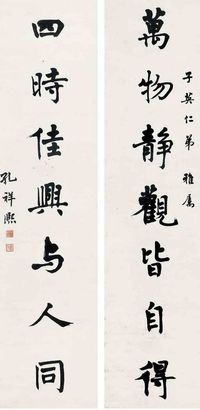 子英仁弟 雅屬
萬物靜觀皆自得
四時佳興与人同
孔祥熙